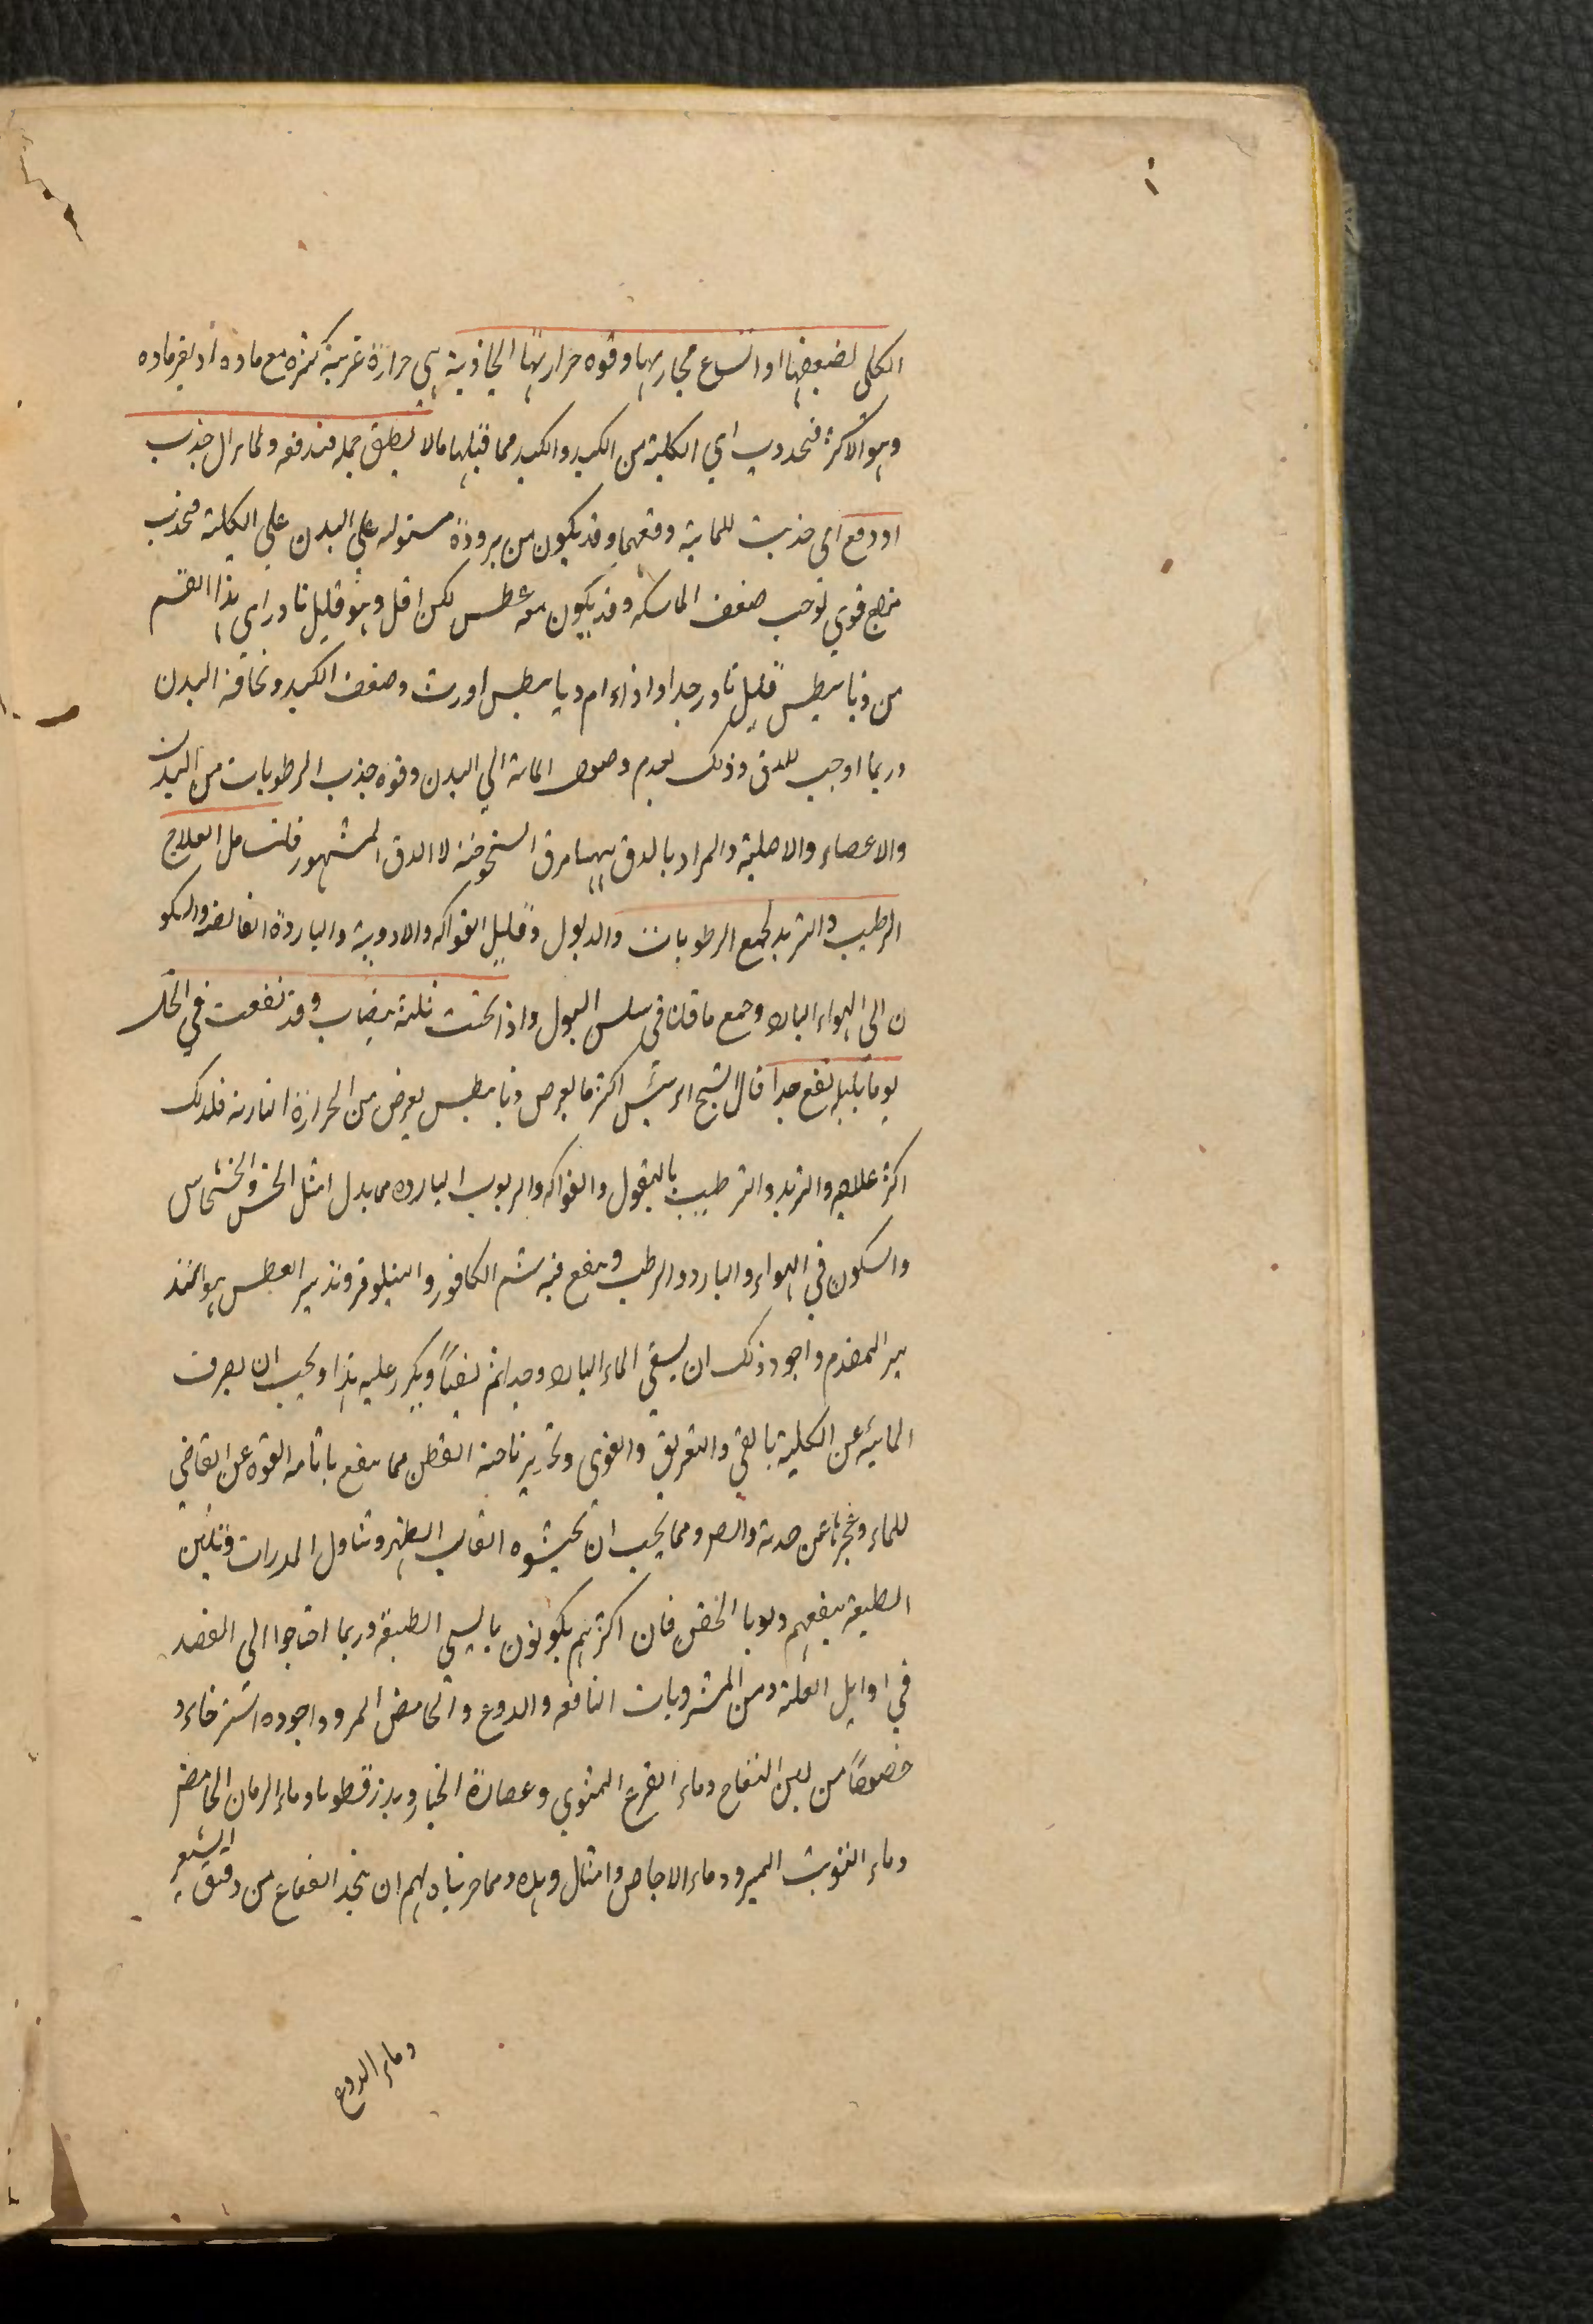 الكلى لضعفها او اتساع مجاريها وقوه حرارتها الجاذبة هي حرارة غريبة كثره مع ماده او بغير ماده
وهو الاكثر فتحدوب اي الكلية من الكبد والكبد مما قبلها مالا يطيق حمله فتدفعه ولا يزال جذب
او دفع اي جذبت للمائية ودفعها وقد يكون من برودة مستوليه علي البدن علي الكلية فتحذب
مزاج قوي يوجب ضعف الماسكه وقد يكون معه عطس لكن اقل وهو قليل نادر اي هذا القسم
من ذيابيطس قليل نادر جدا واذا دام ديابيطس اورث وضعف الكبد ونحافة البدن
وربما اوجب للدق وذلك لعدم وصول المائة الي البدن وقوه جذب الرطوبات من البدن
والاعضاء والاصلية والمراد بالدق ههنا مرق السخوخة لا الدق المشهور فانت مل العلاج
الرطيب والتبريد لجمع الرطوبات والدبول وقليل الفواكه والادوية والباردة القابضه والسكو
ن الى الهواء البارد وجمع ما قلنا في سلس البول واذا تحت ثلثة بيضات وقد نفعت في الخل
يوما بليله نفع جدا قال الشيخ الرئيس اكثر ما يعرض ذيابيطس يعرض من الحرارة النارية فلذلك
اكثر علاجه والتبريد والترطيب بالبقول والفواكه والربوب البارده مما بدل امثل الخس والخشخاس
والسكون في الهواء والبارد والرطب وينفع فيه شم الكافور والنيلوفر وتدبير العطس هو التد
بير المقدم واجود ذلك ان يسقي الماء البارد وجدا ثم يقيأ ويكرر عليه هذا ويجب ان يصرف
المائية عن الكلية بالقي والتعريق والقوي وتخدير ناحية القطن مما ينفع باثامه القوه عن التقاضي
للماء وغيرها عن جدبه والصر ومما يجب ان يجتنبوه اتعاب الظهر وتناول المدرات وتليين
الطبيعة ينفعهم ولو با الحقن فان اكثرهم يكونون يابسي الطبيعة وربما احتاجوا الي الفصد
في اوايل العلة ومن المشروبات النافعه والدوغ والحامض المر وواجوده استرخاء و
خصوصاً من لبن النفاح وماء القرع المشوي وعصارة الخيار وبذر قطونا وماء الرمان الحامض
وماء التوت المبرود وماء الاجاص وامثال وهذه ومما جربناه لهم ان يتخذ الفقاع من دقيق الشعير
وماء الدوغ